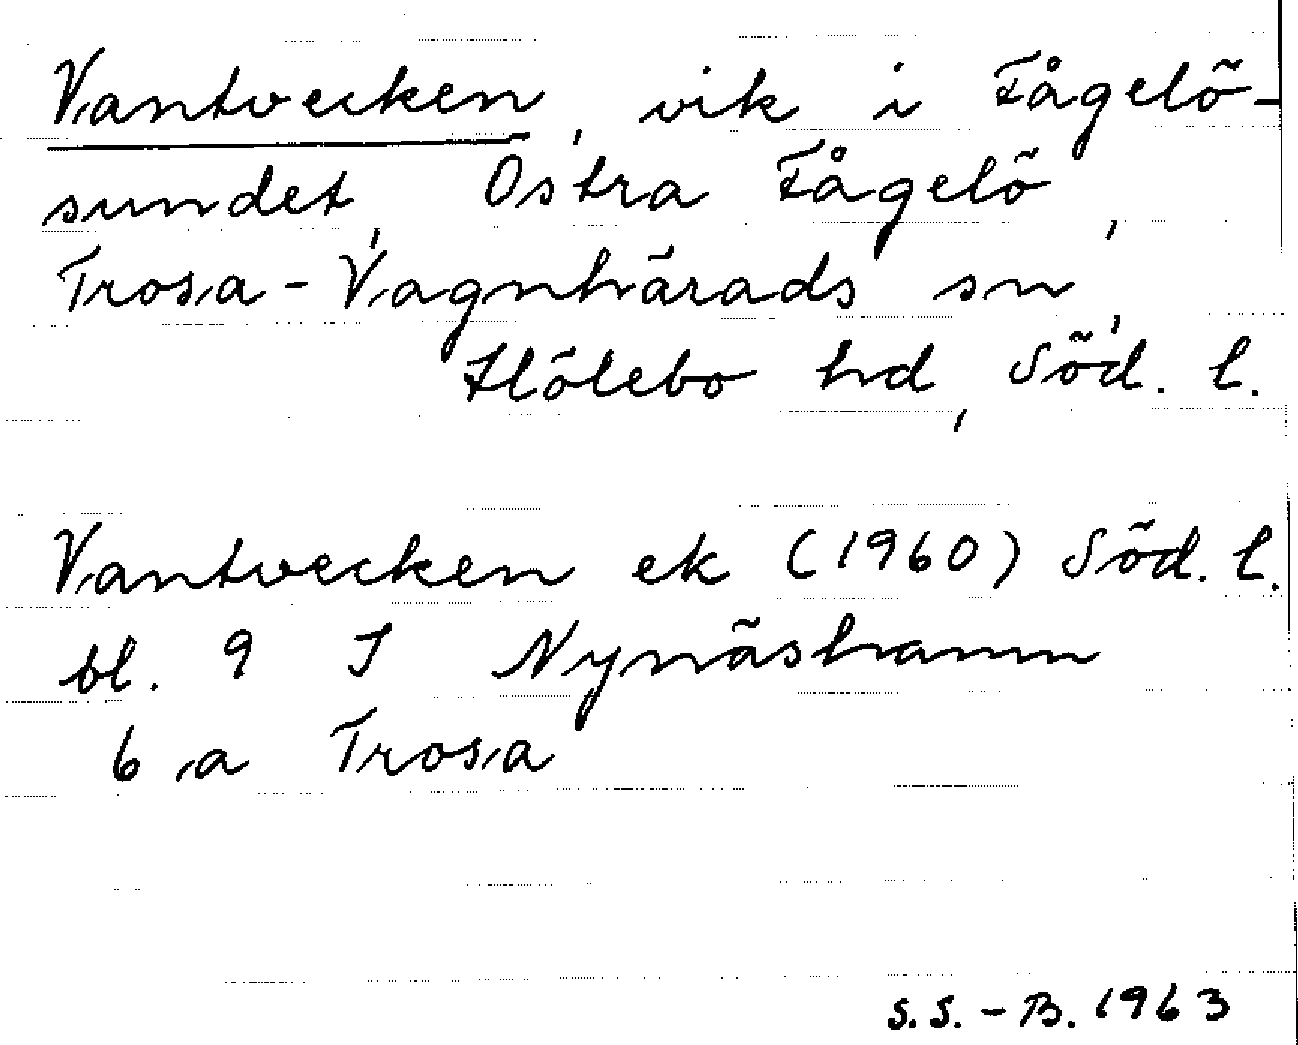 Vantvecken, vik i Fågelö-
sundet, Östra Fågelö,
Trosa-Vagnhärads sn,
Hölebo hd, Söd. l.
Vantvecken ek (1960) Söd. l.
bl. 9 I Nynäshamn
6 a Trosa
S.S.-B. 1963